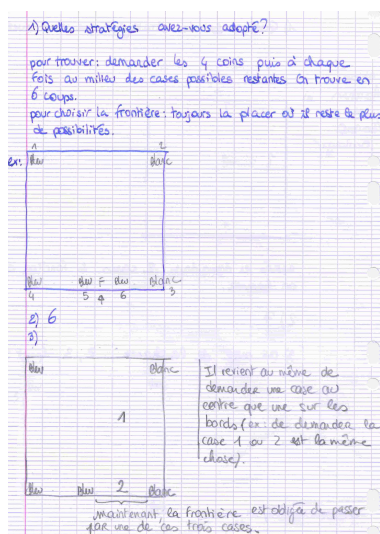 1) Quelles stratégies avez-vous adopté?
pour trouver: demander les 4 coins puis à chaque
fois au milieu des cases possibles restantes On trouve en
6 coups.
pour choisir la frontière: toujours la placer où il reste le plus
de possibilités.
1 2
ex: Bleu Blanc
Bleu Bleu F Bleu Blanc
4 5 6 3
2) 6
3)
Bleu Blanc
Il revient au même de
demander une case au
centre que une sur les
bords (ex: de demander la
case 1 ou 2 est la même
chose).
1
Bleu Bleu 2 Blanc
maintenant, la frontière est obligée de passer
par une de ces trois cases.